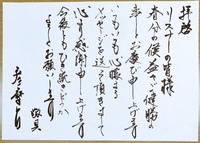 拝啓
リスナーの皆様
春分の候益々ご健勝の
事とお慶び申し上げます
いつもいつも心暖まる
メッセージを送って頂きまして
心より感謝申し上げます
今後ともひき続きどうか
よろしくお願いします
敬具